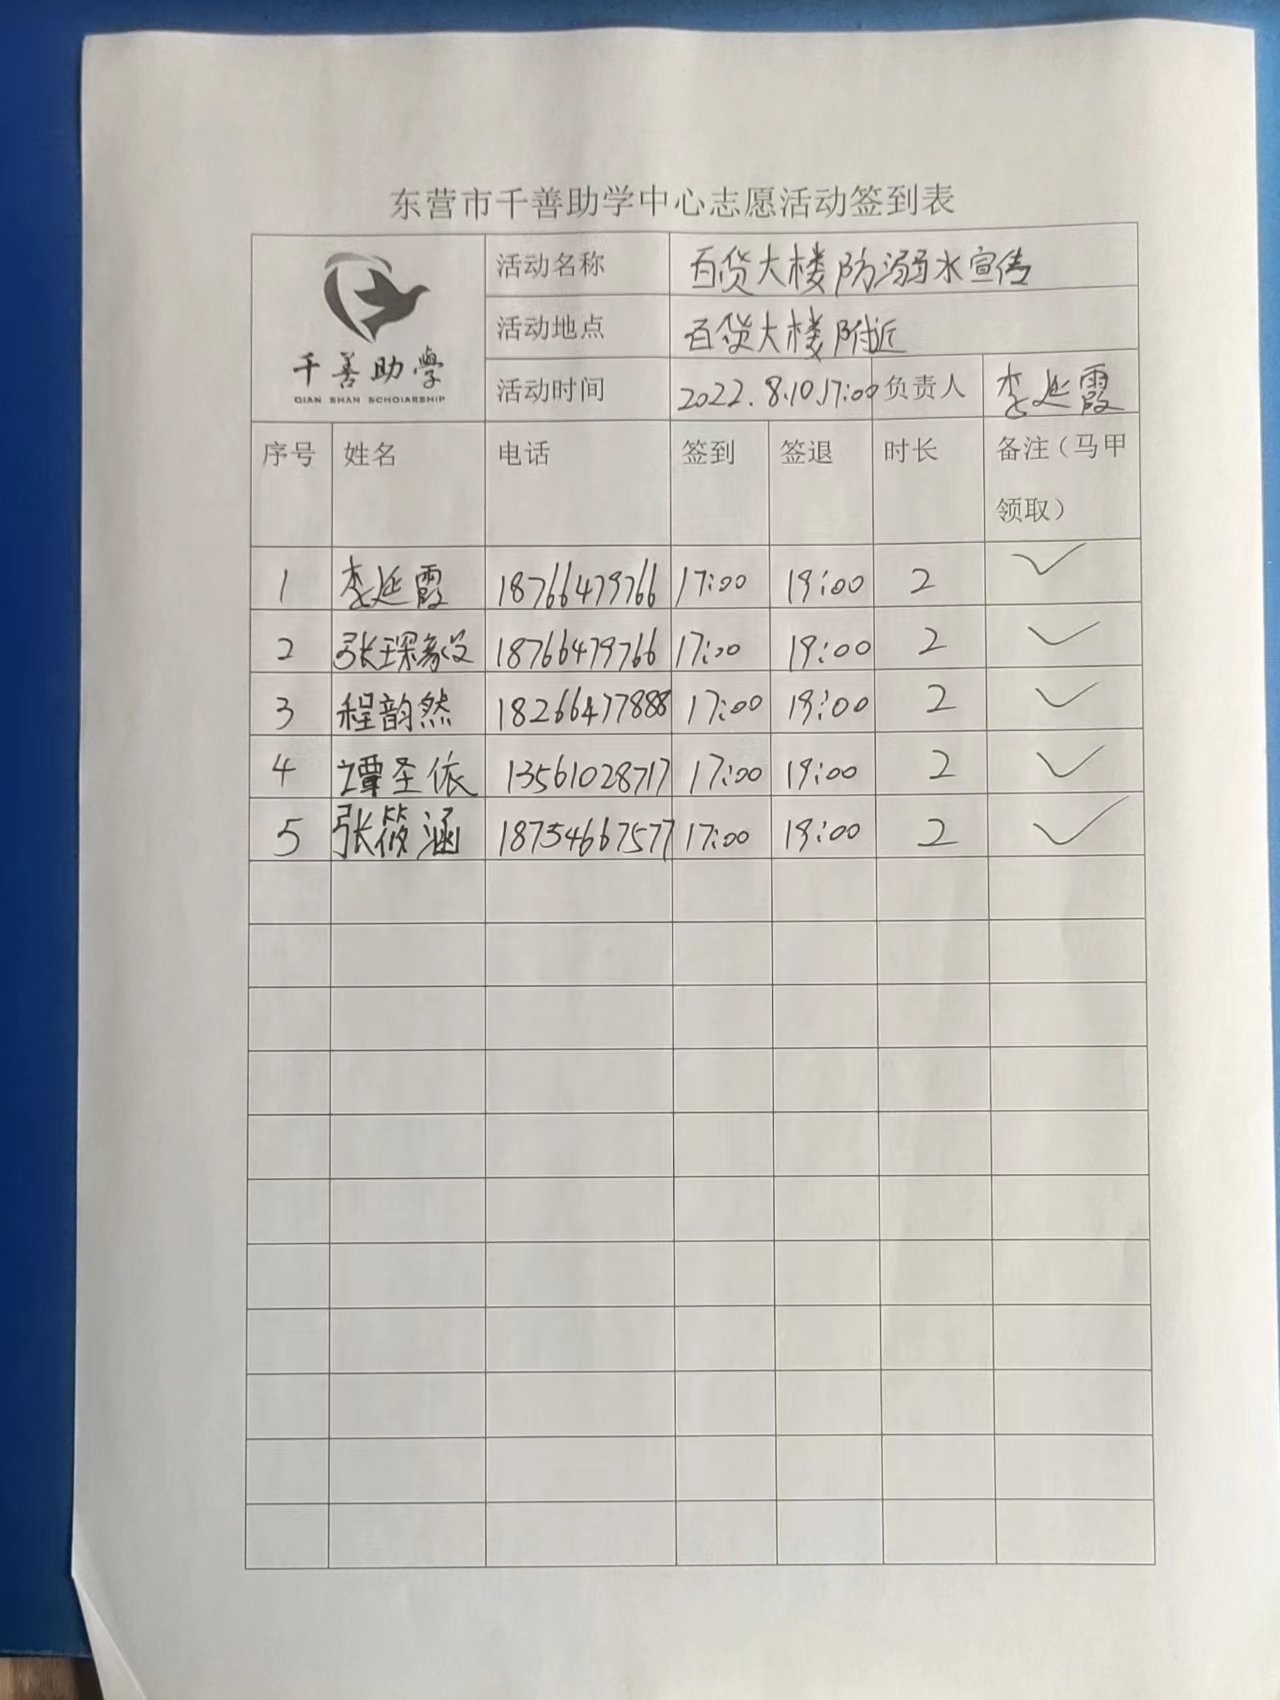 东营市千善助学中心志愿活动签到表
千善助学
QIAN SHAN SCHOLARSHIP
活动名称 百货大楼防溺水宣传
活动地点 百货大楼附近
活动时间 2022.8.10.17:00 负责人 李延霞
序号 姓名 电话 签到 签退 时长 备注（马甲
领取）
1 李延霞 18766479766 17:00 19:00 2 ✓
2 张琛 18766479766 17:00 19:00 2 ✓
3 程韵然 18266477888 17:00 19:00 2 ✓
4 谭圣依 13561028717 17:00 19:00 2 ✓
5 张筱涵 18754667577 17:00 19:00 2 ✓